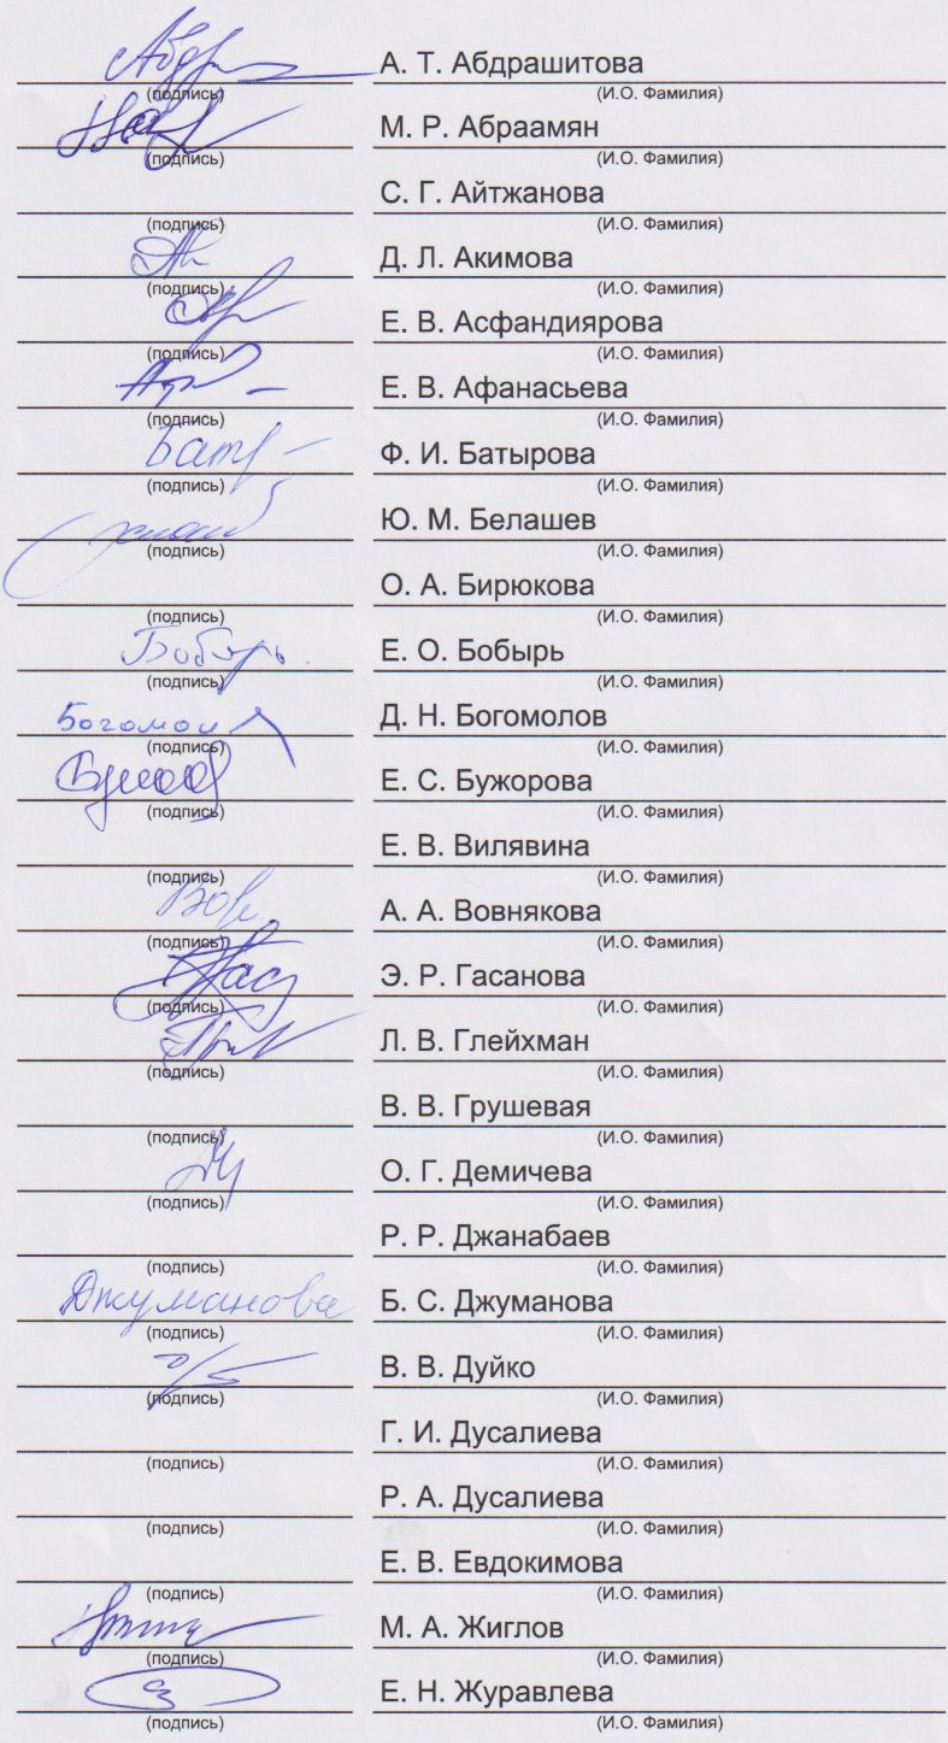 А. Т. Абдрашитова
(подпись) (И.О. Фамилия)
М. Р. Абраамян
(подпись) (И.О. Фамилия)
С. Г. Айтжанова
(подпись) (И.О. Фамилия)
Д. Л. Акимова
(подпись) (И.О. Фамилия)
Е. В. Асфандиярова
(подпись) (И.О. Фамилия)
Е. В. Афанасьева
(подпись) (И.О. Фамилия)
Ф. И. Батырова
(подпись) (И.О. Фамилия)
Ю. М. Белашев
(подпись) (И.О. Фамилия)
О. А. Бирюкова
(подпись) (И.О. Фамилия)
Бобырь Е. О. Бобырь
(подпись) (И.О. Фамилия)
Д. Н. Богомолов
(подпись) (И.О. Фамилия)
Е. С. Бужорова
(подпись) (И.О. Фамилия)
Е. В. Вилявина
(подпись) (И.О. Фамилия)
А. А. Вовнякова
(подпись) (И.О. Фамилия)
Э. Р. Гасанова
(подпись) (И.О. Фамилия)
Л. В. Глейхман
(подпись) (И.О. Фамилия)
В. В. Грушевая
(подпись) (И.О. Фамилия)
О. Г. Демичева
(подпись) (И.О. Фамилия)
Р. Р. Джанабаев
(подпись) (И.О. Фамилия)
Джуманова Б. С. Джуманова
(подпись) (И.О. Фамилия)
В. В. Дуйко
(подпись) (И.О. Фамилия)
Г. И. Дусалиева
(подпись) (И.О. Фамилия)
Р. А. Дусалиева
(подпись) (И.О. Фамилия)
Е. В. Евдокимова
(подпись) (И.О. Фамилия)
М. А. Жиглов
(подпись) (И.О. Фамилия)
Е. Н. Журавлева
(подпись) (И.О. Фамилия)